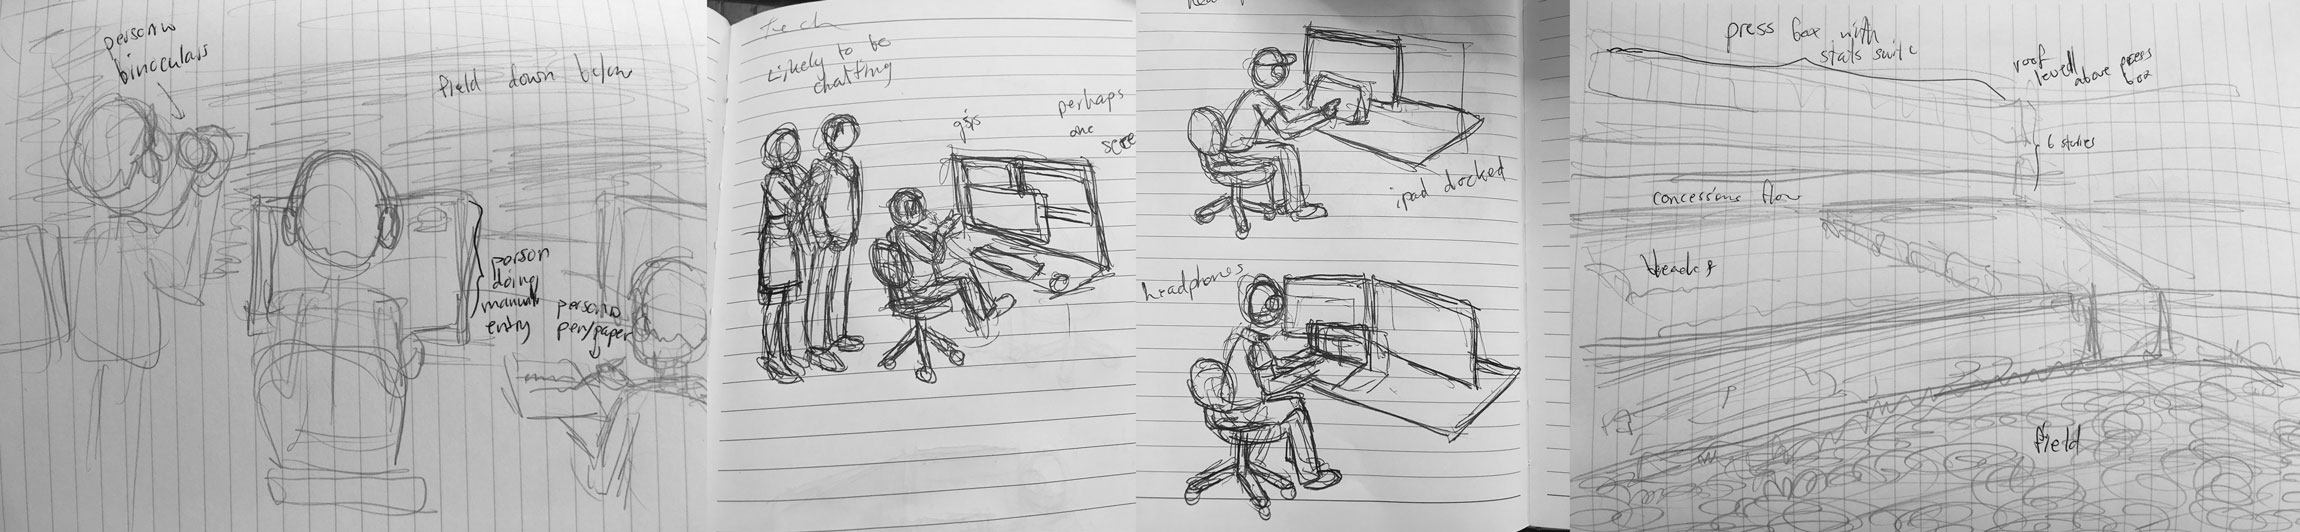 person w
binoculars
field down below
person
doing
manual
entry
person w
pen/paper
tech
Likely to be
chatting
gsis
perhaps
one
scree
ipad docked
headphones
press box with
stats suite
roof
level above press
box
6 stories
concessions floor
bleachers
field